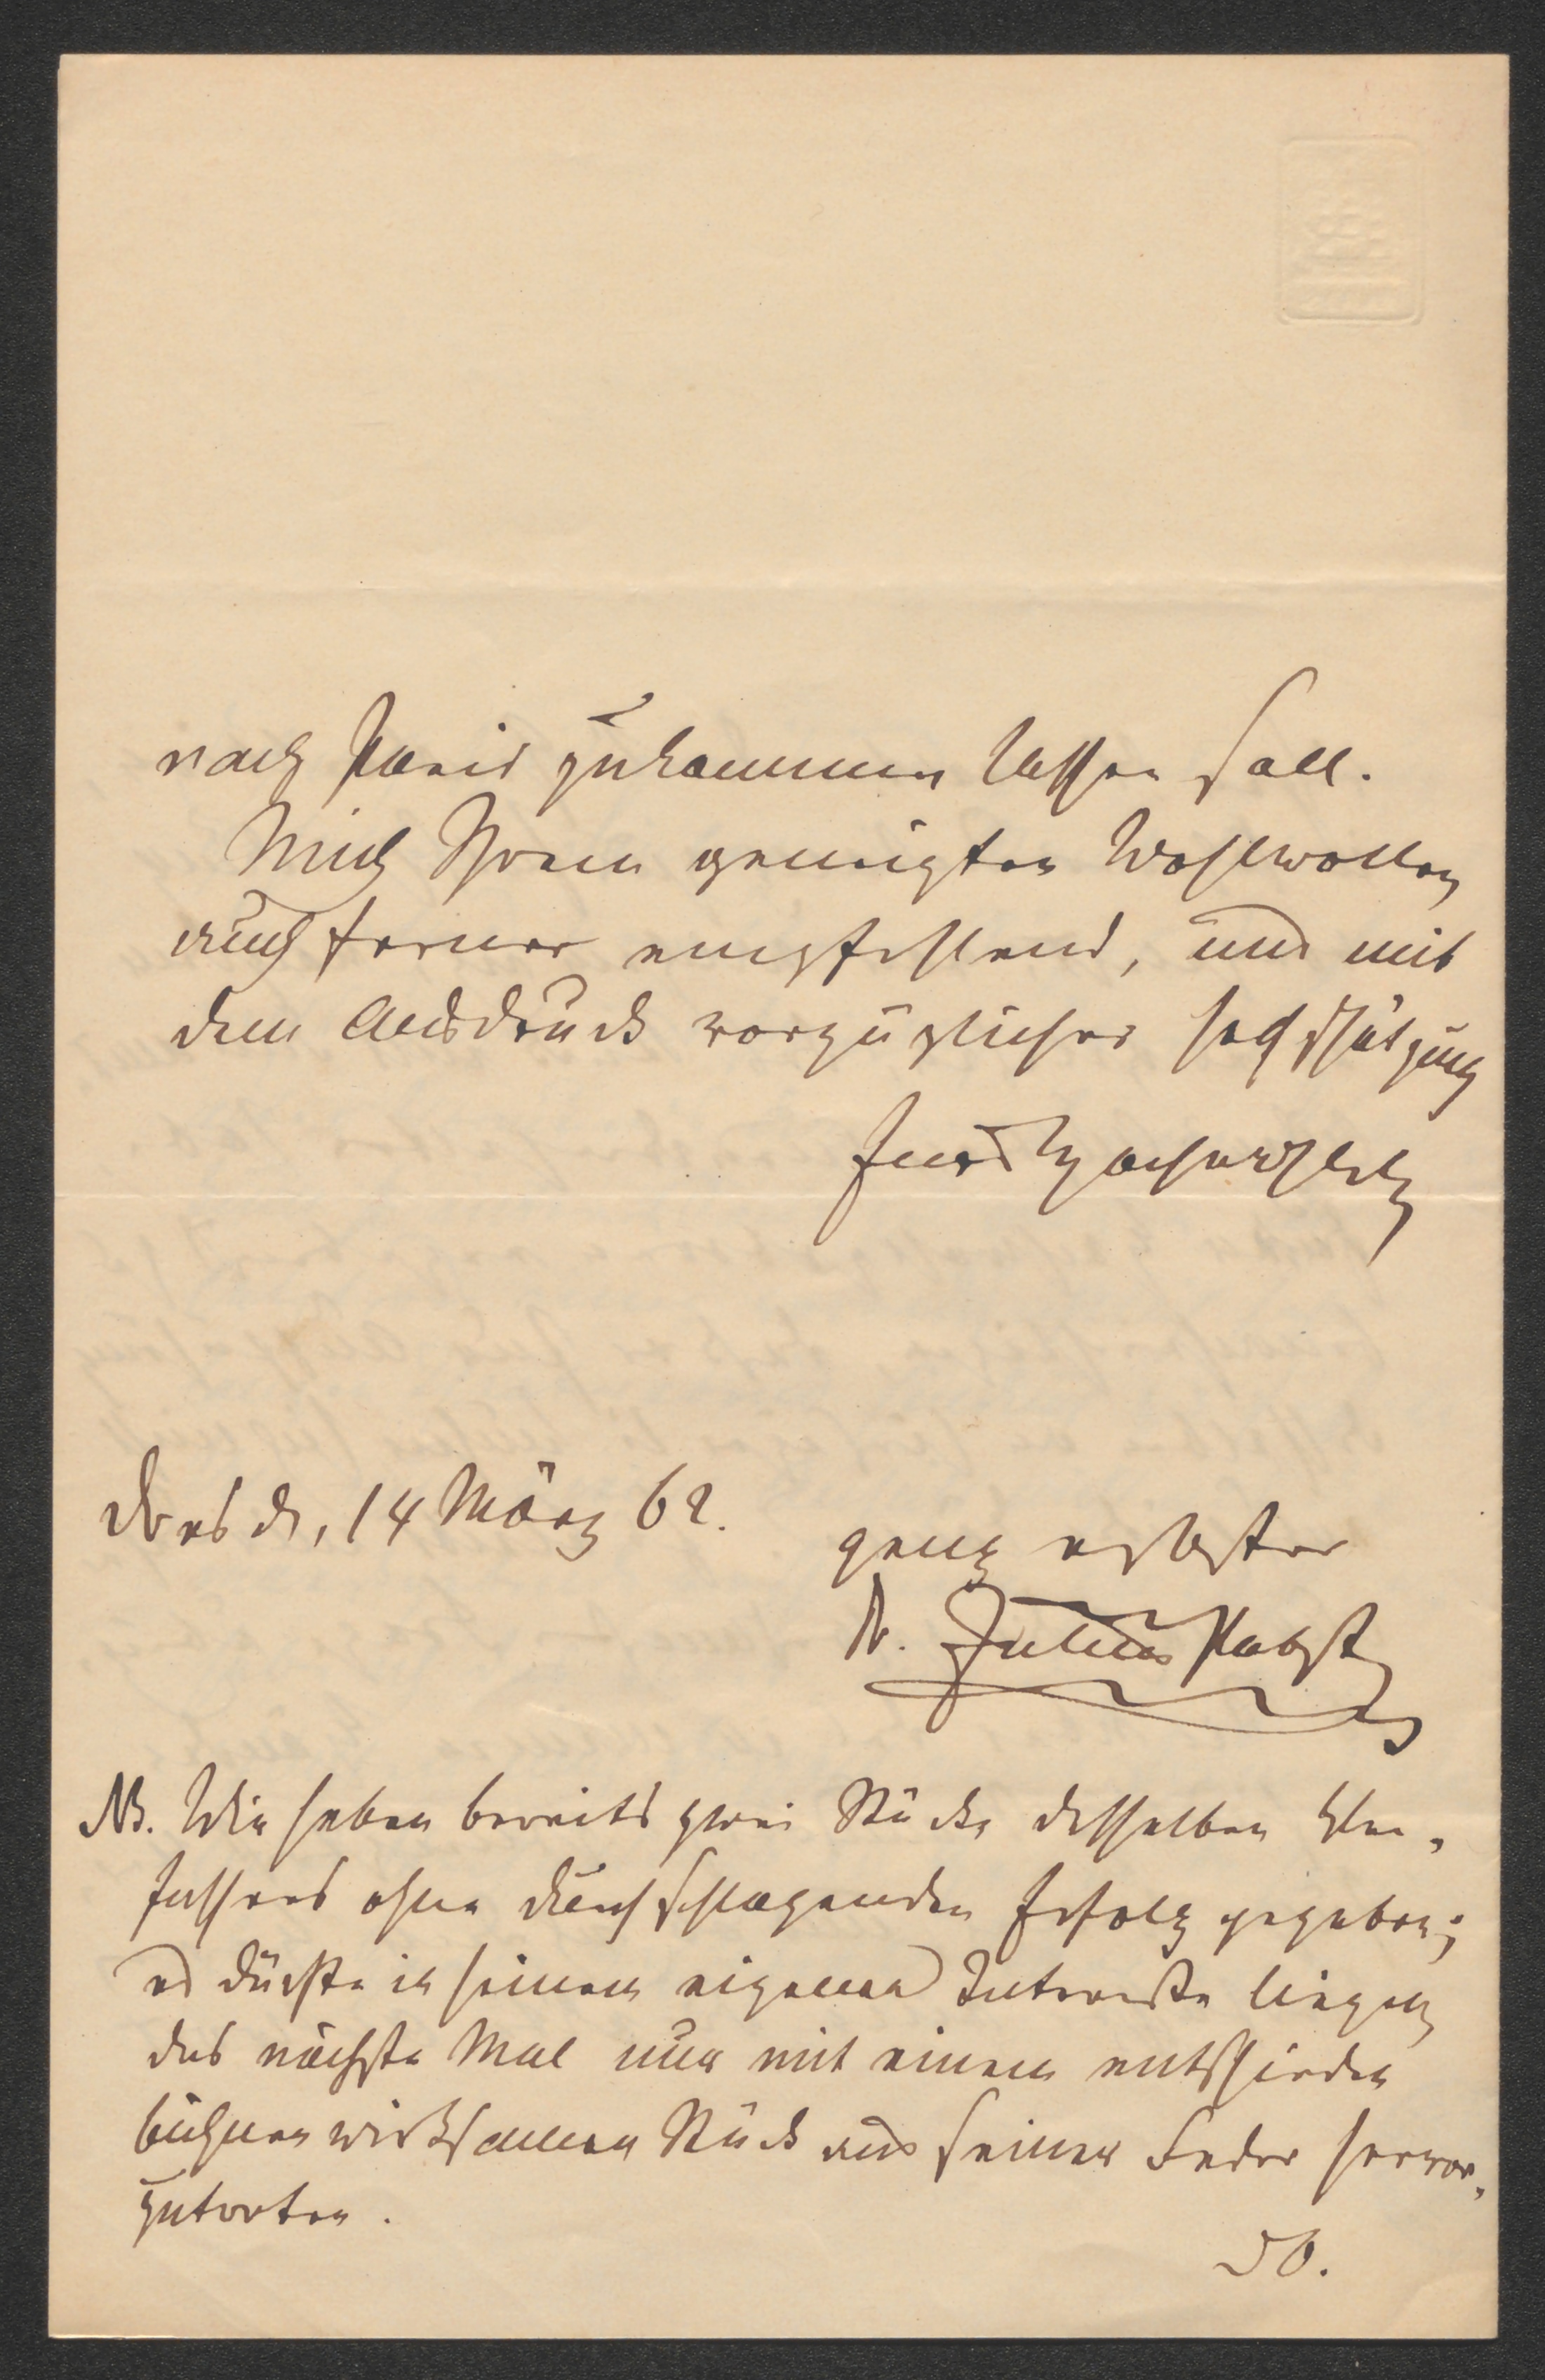 nach Paris zukommen lassen soll.
Mich Ihrem geneigten Wohlwollen
auch ferner empfehlend, und mit
dem Ausdruck vorzüglicher Hochschätzung
Euer Hochwohlgeb
Dresd., 14 März 62.
ganz ergebenster
Dr. Julius Pabst
NB. Wir haben bereits zwei Stücke desselben Ver-
fassers ohne durchschlagenden Erfolg gegeben;
es dürfte in seinem eigenen Interesse liegen
das nächste Mal nur mit einem entschieden
bühnenwirksamen Stück aus seiner Feder hervor-
zutreten.